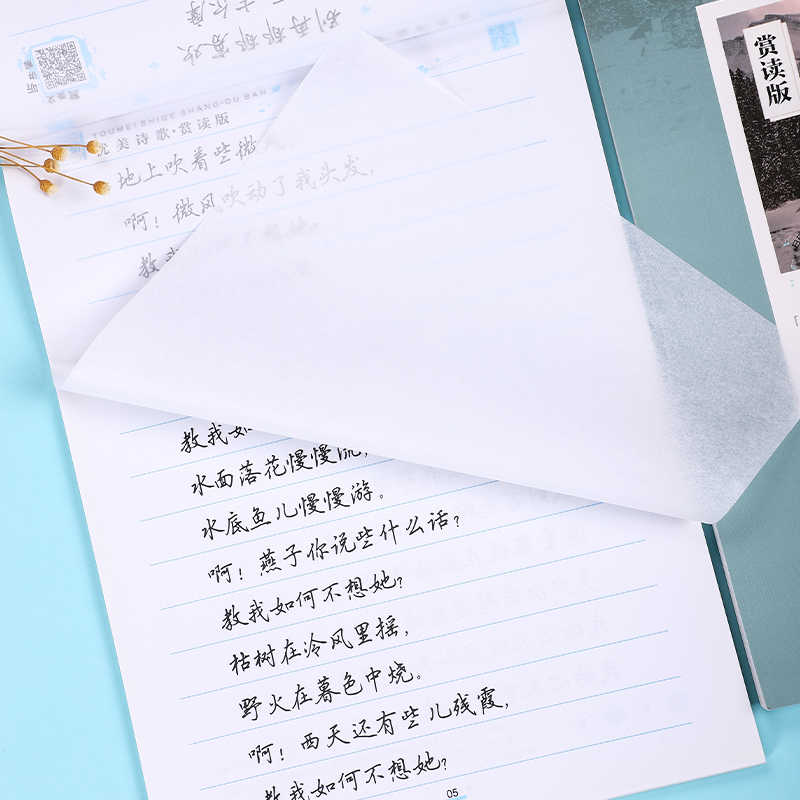 利再都都喜欢
听讲解
YOUMEI SHIGE SHANG·DU BAN
优美诗歌·赏读版
地上吹着些微
啊!微风吹动了我头发,
教我
教我如
水面落花慢慢流,
水底鱼儿慢慢游。
啊!燕子你说些什么话?
教我如何不想她?
枯树在冷风里摇,
野火在暮色中烧。
啊!西天还有些儿残霞,
教我如何不想她?
05
赏读版